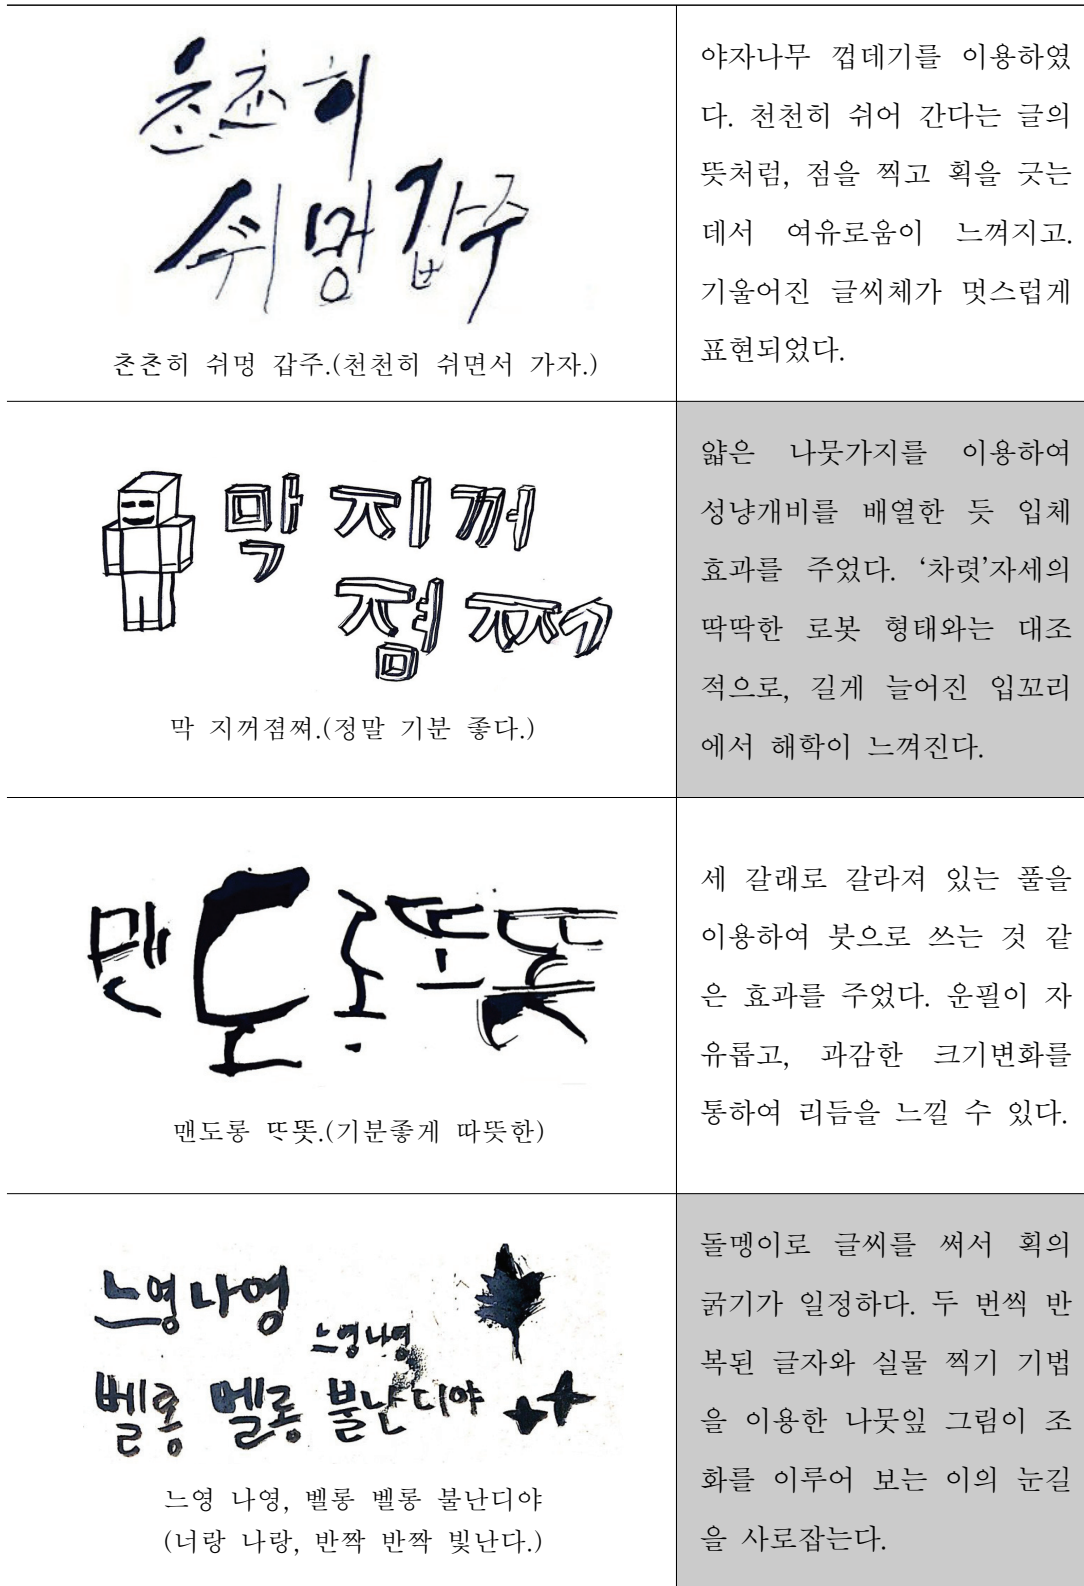 촌촌히
쉬멍 갑주
촌촌히 쉬멍 갑주.(천천히 쉬면서 가자.)
야자나무 껍데기를 이용하였
다. 천천히 쉬어 간다는 글의
뜻처럼, 점을 찍고 획을 긋는
데서 여유로움이 느껴지고.
기울어진 글씨체가 멋스럽게
표현되었다.
막 지꺼
졈쪄
막 지꺼졈쪄.(정말 기분 좋다.)
얇은 나뭇가지를 이용하여
성냥개비를 배열한 듯 입체
효과를 주었다. ‘차렷’자세의
딱딱한 로봇 형태와는 대조
적으로, 길게 늘어진 입꼬리
에서 해학이 느껴진다.
맨도롱ᄄᆞ뜻
맨도롱 ᄄᆞ뜻.(기분좋게 따뜻한)
세 갈래로 갈라져 있는 풀을
이용하여 붓으로 쓰는 것 같
은 효과를 주었다. 운필이 자
유롭고, 과감한 크기변화를
통하여 리듬을 느낄 수 있다.
느영나영
느영나영
벨롱 벨롱 불난디야
느영 나영, 벨롱 벨롱 불난디야
(너랑 나랑, 반짝 반짝 빛난다.)
돌멩이로 글씨를 써서 획의
굵기가 일정하다. 두 번씩 반
복된 글자와 실물 찍기 기법
을 이용한 나뭇잎 그림이 조
화를 이루어 보는 이의 눈길
을 사로잡는다.